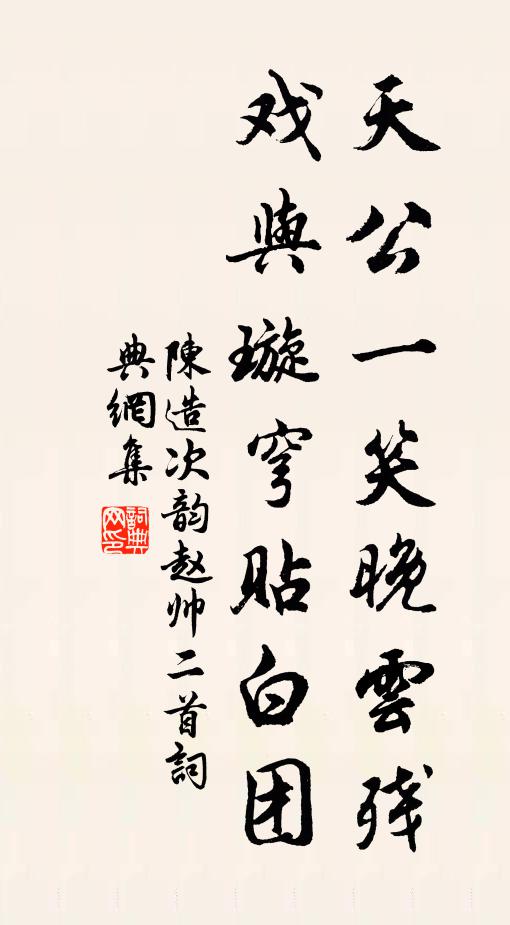 天公一笑晚雲残
戏與璇穹貼白团
陳造次韵赵帅二首詞
典網集
詞典网印